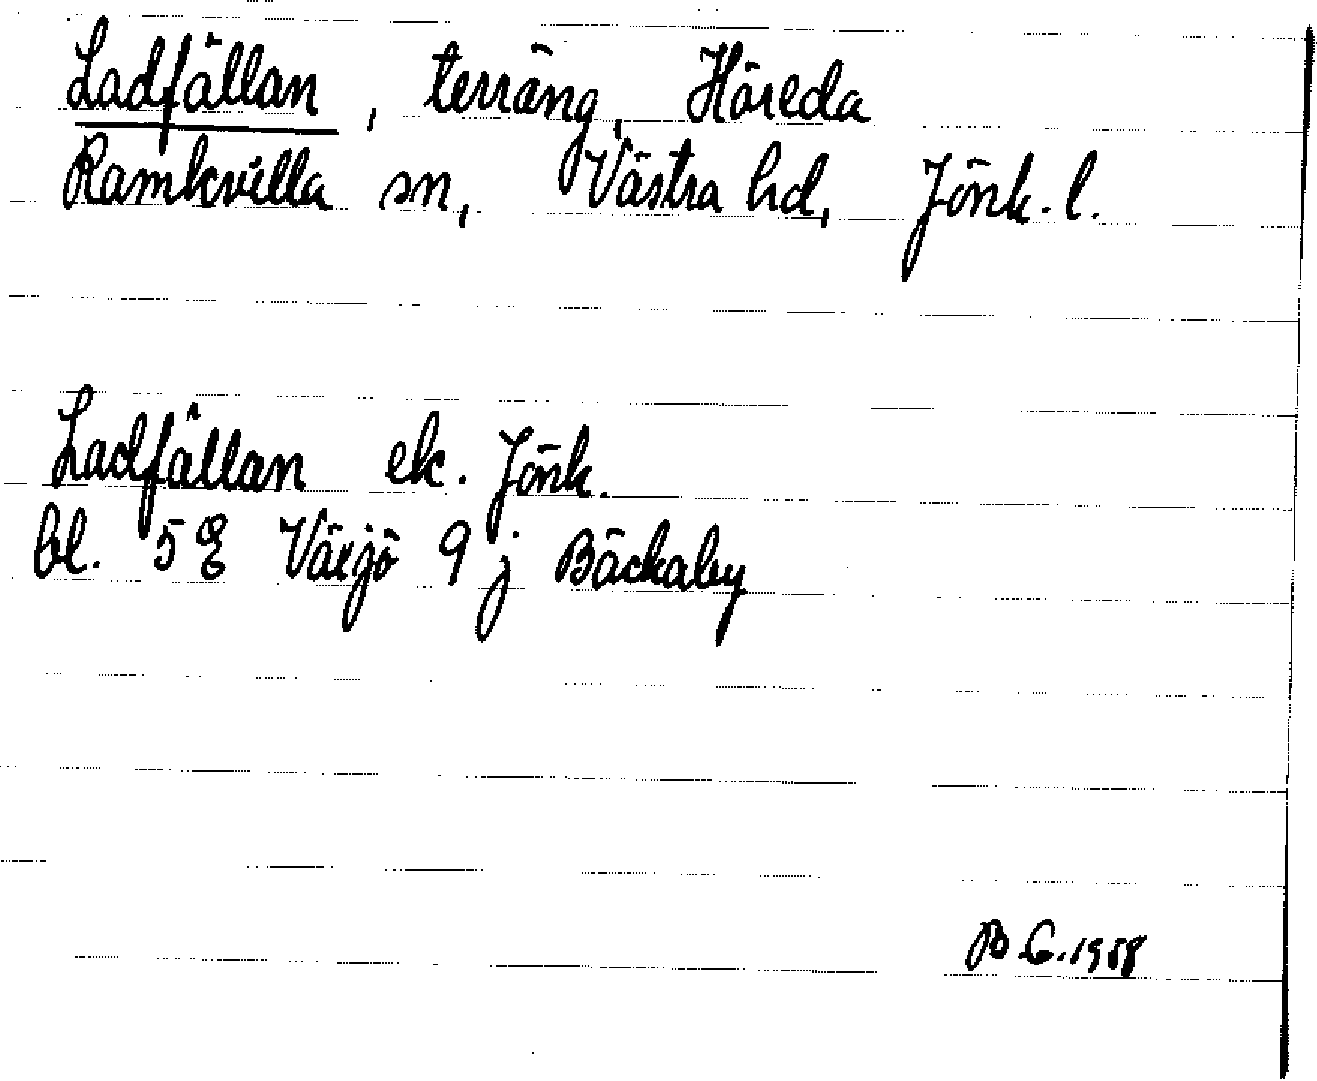 Ladfällan, terräng, Häreda
Ramkvilla sn, Västra hd, Jönk. l.
Ladfällan ek. Jönk.
bl. 5 E Växjö 9 j Bäckaby
B G. 1958